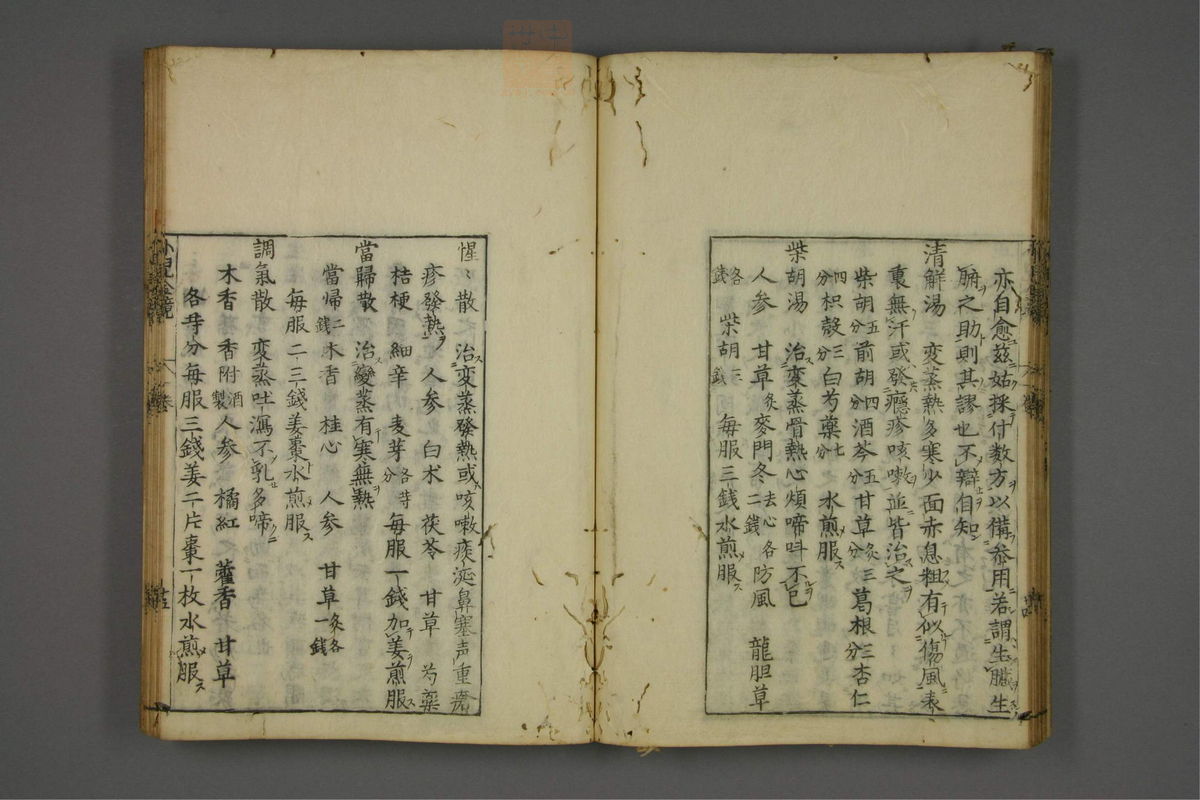 亦自愈茲姑採付数方以備參用若謂生臓生
腑之助則其謬也不辯自知
清解湯　変蒸熱多寒少面赤息粗有似傷風表
裏無汗或發癮疹咳嗽並皆治之
柴胡五分前胡四分酒芩五分甘草炙三分葛根三分杏仁
四分枳殻三分白芍藥七分　水煎服
柴胡湯　治変蒸骨熱心煩啼叫不已
人参　甘草炙麥門冬去心各二錢防風　龍胆草
各錢柴胡三錢　毎服三錢水煎服
惺〻散　治変蒸發熱或咳嗽痰涎鼻塞声重瘡
疹發熱　人参　白术　茯苓　甘草　芍薬
桔梗　細辛　麦芽各等分　毎服一錢加姜煎服
當歸散　治變蒸有寒無熱
當帰二錢木香　桂心　人参　甘草炙各一錢
毎服二三錢姜棗水煎服
調氣散　変蒸吐瀉不乳多啼
木香　香附酒製人参　橘紅　藿香　甘草
各等分毎服三錢姜二片棗一枚水煎服
小児金鏡